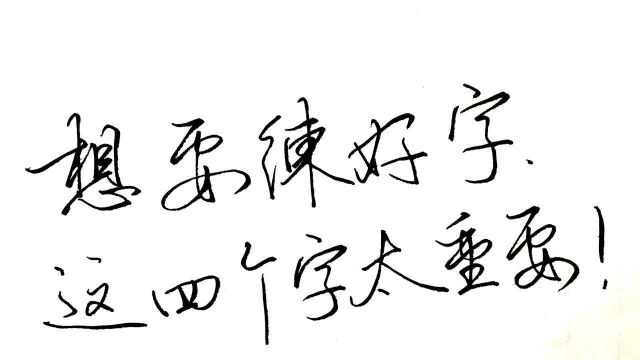 想要練好字、
这四个字太重要！